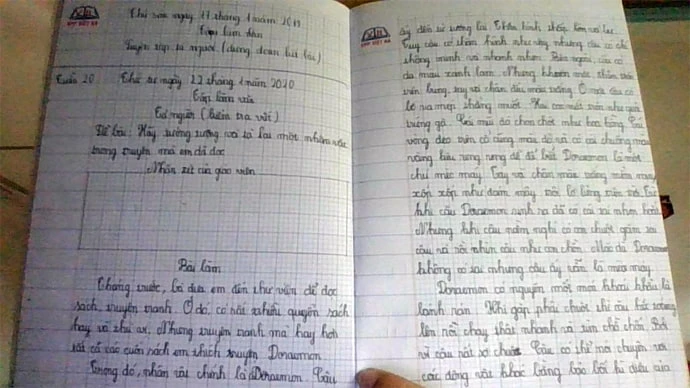 Thứ sáu ngày 17 tháng 1 năm 2019
Tập làm văn
Luyện tập tả người (dựng đoạn kết bài)
Tuần 20
Thứ tư ngày 22 tháng 1 năm 2020
Tập làm văn
Tả người (kiểm tra viết)
Đề bài: Hãy tưởng tượng và tả lại một nhân vật
trong truyện mà em đã đọc
Nhận xét của giáo viên
Bài làm
Tháng trước, bà đưa em đến thư viện để đọc
sách, truyện tranh. Ở đó, có rất nhiều quyển sách
hay và thú vị. Nhưng truyện tranh mà hay hơn
tất cả các cuốn sách em thích truyện Doraemon.
Trong đó, nhân vật chính là Doraemon. Cậu
ấy đến từ tương lai. Thân hình thấp
Tuy cậu có thân hình như vậy nhưng cậu có chí
thông minh và nhanh nhẹn. Bên ngoài, cậu có
da màu xanh lam. Nhưng khuôn mặt, thân trước
viên bụng, tay và chân đều màu trắng. Ở mũi cậu có
ria mép thẳng muột. Hai con mắt tròn như quả
trứng gà. Cái mũi đỏ chon chót như hoa hồng. Cái
vòng đeo trên cổ cũng màu đỏ và có cái chuông màu
vàng kêu reng reng để đã biết Doraemon là một
chú mèo máy. Tay và chân màu trắng mềm mại
xốp xốp như đám mây trôi lơ lửng trên trời. Lúc
khi cậu Doraemon sinh ra đã có cái tai nhọn hoắt
Nhưng khi cậu nằm nghỉ có con chuột gặm tai
cậu và rồi nhìn cậu như con chồn. Mặc dù Doraemon
không có tai nhưng cậu ấy vẫn là mèo máy.
Doraemon có nguyện một mái khoái khẩu là
bánh rán. Khi gặp phải chuột thì cậu hét toáng
lên rồi chạy thật nhanh và tìm chỗ chốn. Bởi
vì cậu rất sợ chuột. Cậu có thể nói chuyện với
các động vật khác bằng bảo bối kì diệu của